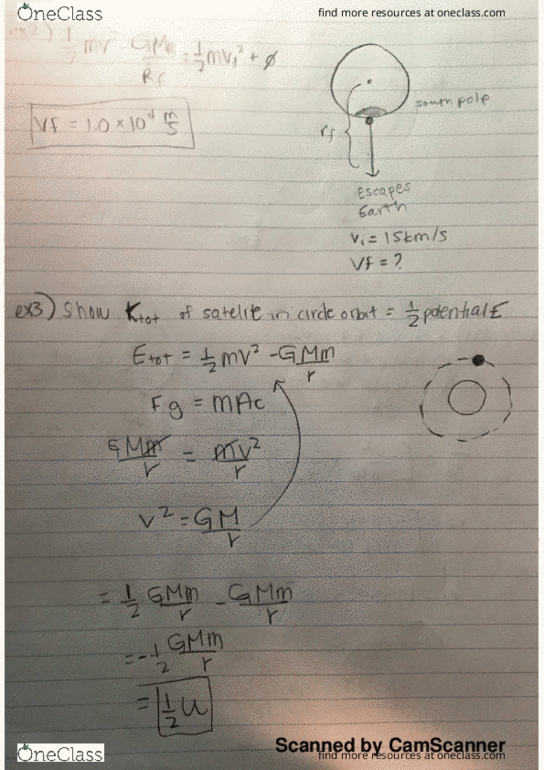 OneClass
find more resources at oneclass.com
1/2 mv² GMm/R = 1/2 mv² + ∅
Vf = 1.0 × 10⁴ m/s
south pole
rf
Escapes
Earth
Vi = 15km/s
Vf = ?
ex3) Show Ktot of satelite in circle orbit = 1/2 potential E
Etot = 1/2 mv² - GMm/r
Fg = mAc
GMm/r = mv²/r
v² = GM/r
= 1/2 GMm/r - GMm/r
= -1/2 GMm/r
= 1/2 U
Scanned by CamScanner
OneClass
find more resources at oneclass.com